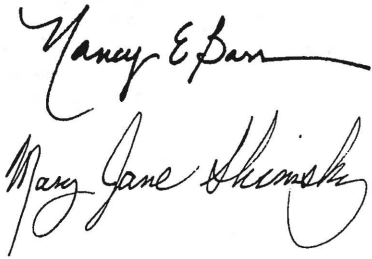 Nancy E Barr
Mary Jane Skinsky